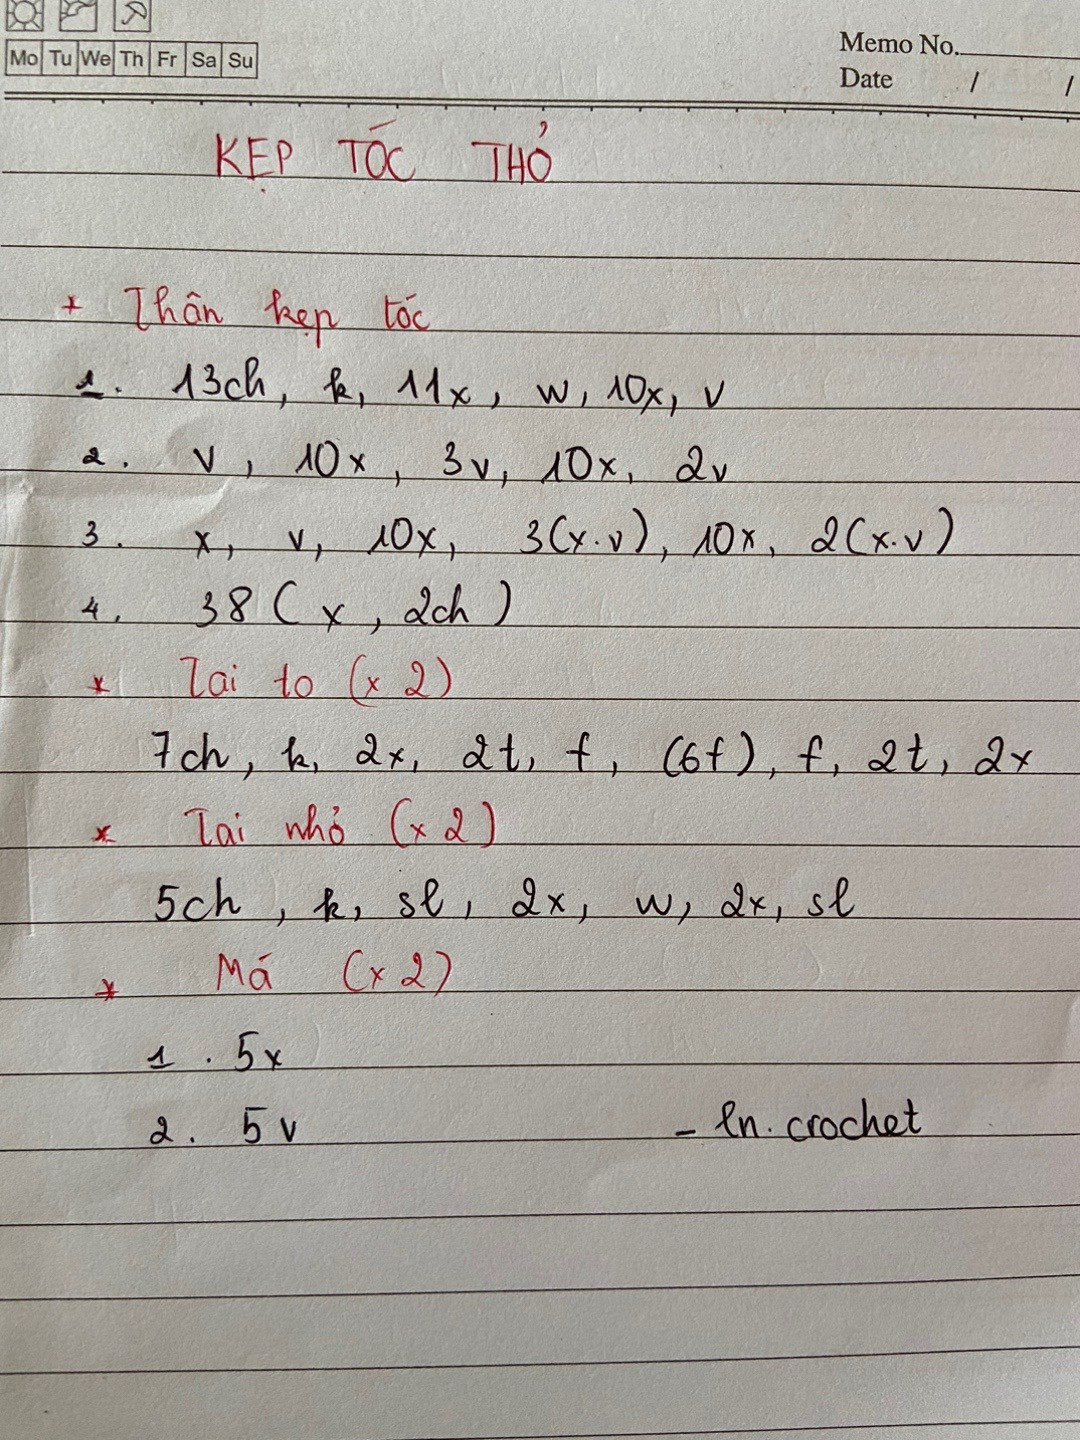 Mo Tu We Th Fr Sa Su
Memo No.
Date / /
KẸP TÓC THỎ
* Thân kẹp tóc
1. 13ch, k, 11x, w, 10x, v
2. v, 10x, 3v, 10x, 2v
3. x, v, 10x, 3(x.v), 10x, 2(x.v)
4. 38 (x, 2ch)
* Tai to (x 2)
7ch, k, 2x, 2t, f, (6f), f, 2t, 2x
* Tai nhỏ (x 2)
5ch, k, sl, 2x, w, 2x, sl
* Má (x 2)
1. 5x
2. 5v
- ln. crochet